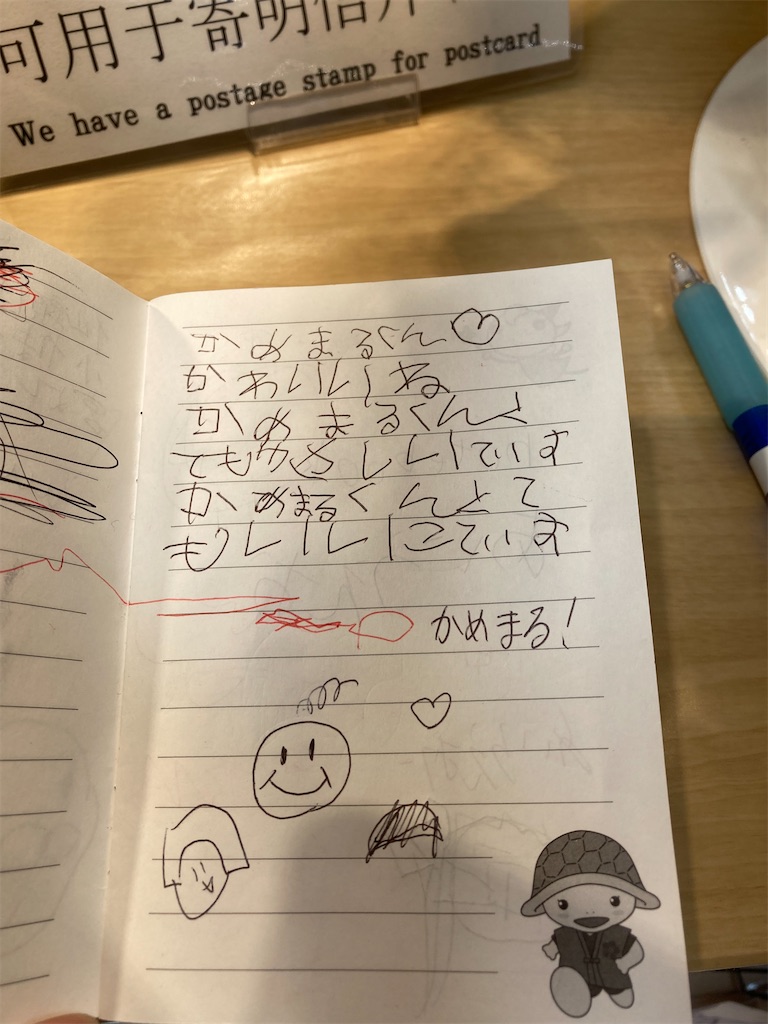 可用于寄明信片
We have a postage stamp for postcard
かめまるくん♡
かわいいね
かめまるくんと
ても
かめまるくんとて
も
かめまる!